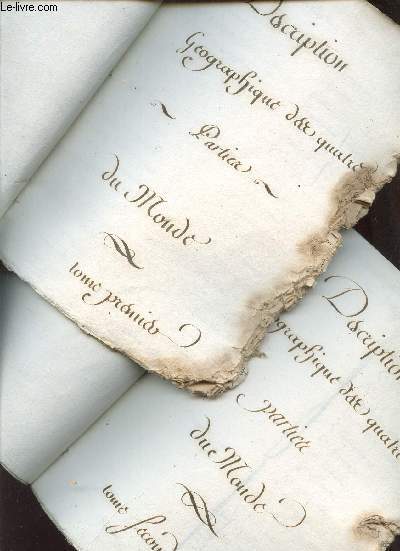 Le-livre.com
Description
Geographique des quatre
Parties
du Monde
tome premier
Description
ographique des quatre
parties
du Monde
tome second